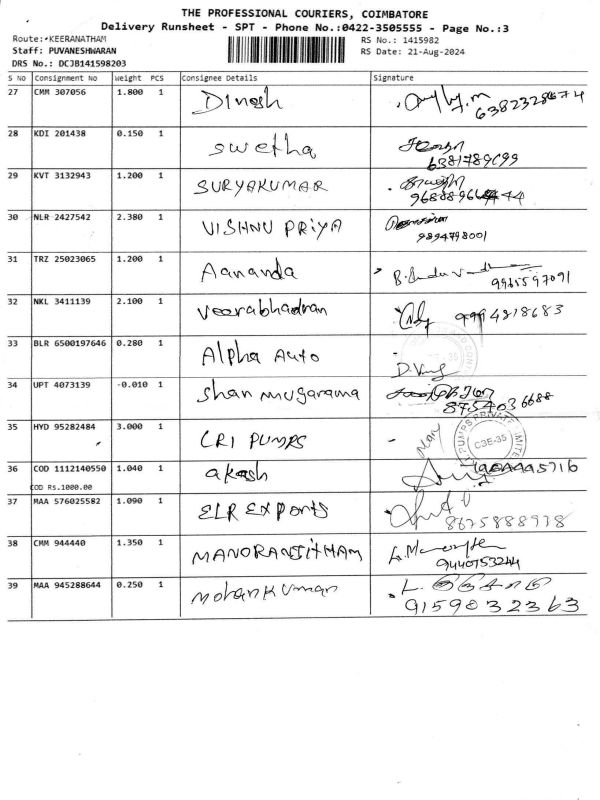 THE PROFESSIONAL COURIERS, COIMBATORE
Delivery Runsheet - SPT - Phone No.:0422-3505555 - Page No.:3
Route: KEERANATHAM RS No.: 1415982
Staff: PUVANESHWARAN RS Date: 21-Aug-2024
DRS No.: DCJB141598203
S No Consignment No Weight PCS Consignee Details Signature
27 CMM 307056 1.800 1 Dinesh
28 KDI 201438 0.150 1 Swetha
6381789699
29 KVT 3132943 1.200 1 SURYAKUMAR
30 NLR 2427542 2.380 1 VISHNU PRIYA
9894798001
31 TRZ 25023065 1.200 1 Aananda
9965597091
32 NKL 3411139 2.100 1 Veerabhadran 9994818683
33 BLR 6500197646 0.280 1 Alpha Auto
34 UPT 4073139 -0.010 1 Shanmugarama
35 HYD 95282484 3.000 1 CRI PUMPS
CBE-35
36 COD 1112140550 1.040 1 akash
COD Rs.1000.00
37 MAA 576025582 1.090 1 ELR Exports
8675888938
38 CMM 944440 1.350 1 MANORANJITHAM
39 MAA 945288644 0.250 1 Mohankumar
9159032363